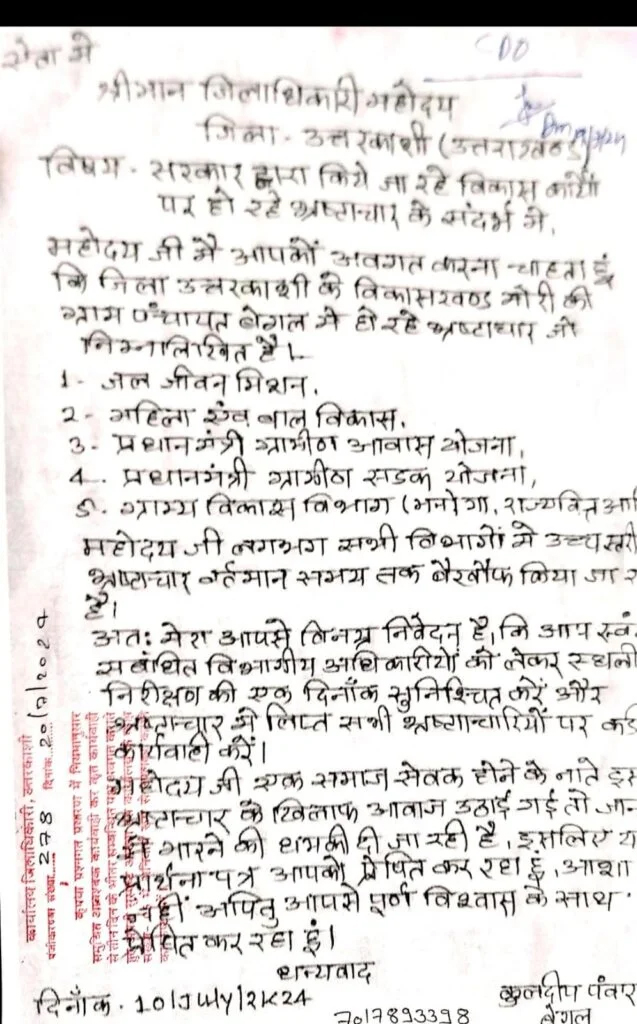 सेवा में
CDO
श्रीमान जिलाधिकारी महोदय
जिला - उत्तरकाशी (उत्तराखण्ड)
विषय - सरकार द्वारा किये जा रहे विकास कार्यों
पर हो रहे भ्रष्टाचार के संदर्भ में,
महोदय जी मै आपकों अवगत करना चाहता हूं
कि जिला उत्तरकाशी के विकासखण्ड मोरी की
ग्राम पंचायत बेगल मे हो रहे भ्रष्टाचार जो
निम्नलिखित है।
1- जल जीवन मिशन,
2- महिला एंव बाल विकास,
3- प्रधानमंत्री ग्रामीण आवास योजना,
4- प्रधानमंत्री ग्रामीण सडक योजना,
5- ग्राम्य विकास विभाग (मनरेगा, राज्यवित आ
महोदय जी लगभग सभी विभागों मे उच्च स्तरी
भ्रष्टाचार वर्तमान समय तक बैखौफ किया जा र
है।
अतः मेरा आपसे विनम्र निवेदन है, कि आप स्वं
सबंधित विभागीय अधिकारीयों को लेकर स्थली
निरीक्षण की एक दिनाँक सुनिश्चित करें और
भ्रष्टाचार मे लिप्त सभी भ्रष्टाचारियों पर कड
कार्यवाही करें।
महोदय जी एक समाज सेवक होने के नाते इस
भ्रष्टाचार के खिलाफ आवाज उठाई गई तो जान
से मारने की धमकी दी जा रही है, इसलिए य
प्रार्थना पत्र आपको प्रेषित कर रहा हूं, आशा
नहीं अपितु आपसे पूर्ण विश्वास के साथ
प्रेषित कर रहा हूं।
धन्यवाद
दिनाँक - 10/July/2K24
कुलदीप पंवार
7017893398
बेगल
कार्यालय जिलाधिकारी, उत्तरकाशी
पंजीकरण संख्या 278 दिनांक 20/7/2024